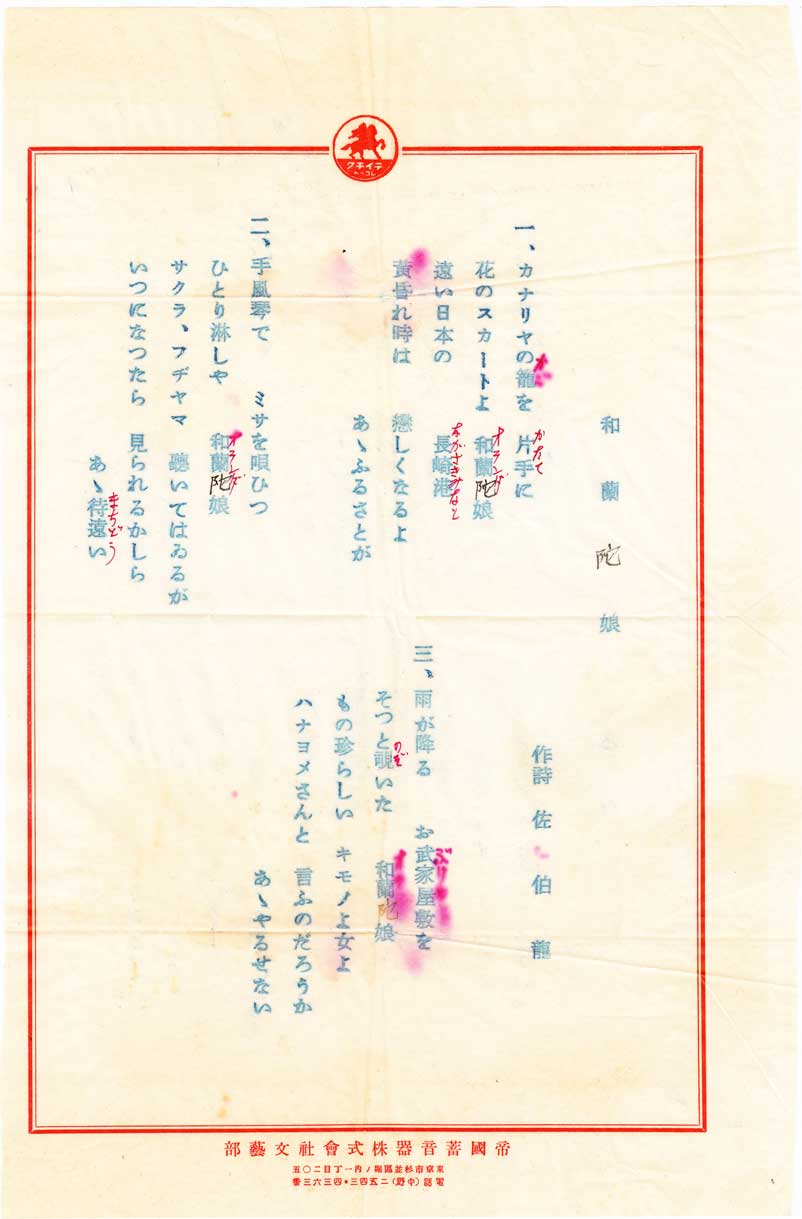 テイチク
レコード
和蘭陀娘
作詩 佐伯龍
一、カナリヤの籠を 片手に
かたて
花のスカートよ 和蘭陀娘
オランダ
遠い日本の 長崎港
ながさきみなと
黄昏れ時は 戀しくなるよ
あゝふるさとが
二、手風琴で ミサを唄ひつ
ひとり淋しや 和蘭陀娘
オランダ
サクラ、フヂヤマ 聽いてはゐるが
いつになつたら 見られるかしら
あゝ待遠い
まちどう
三、雨が降る お武家屋敷を
そつと覗いた 和蘭陀娘
のぞ
もの珍らしい キモノよ女よ
ハナヨメさんと 言ふのだろうか
あゝやるせない
帝國蓄音器株式會社文藝部
東京市杉並區堀ノ内一丁目二〇五
電話(中野)二五四三・四三六三番